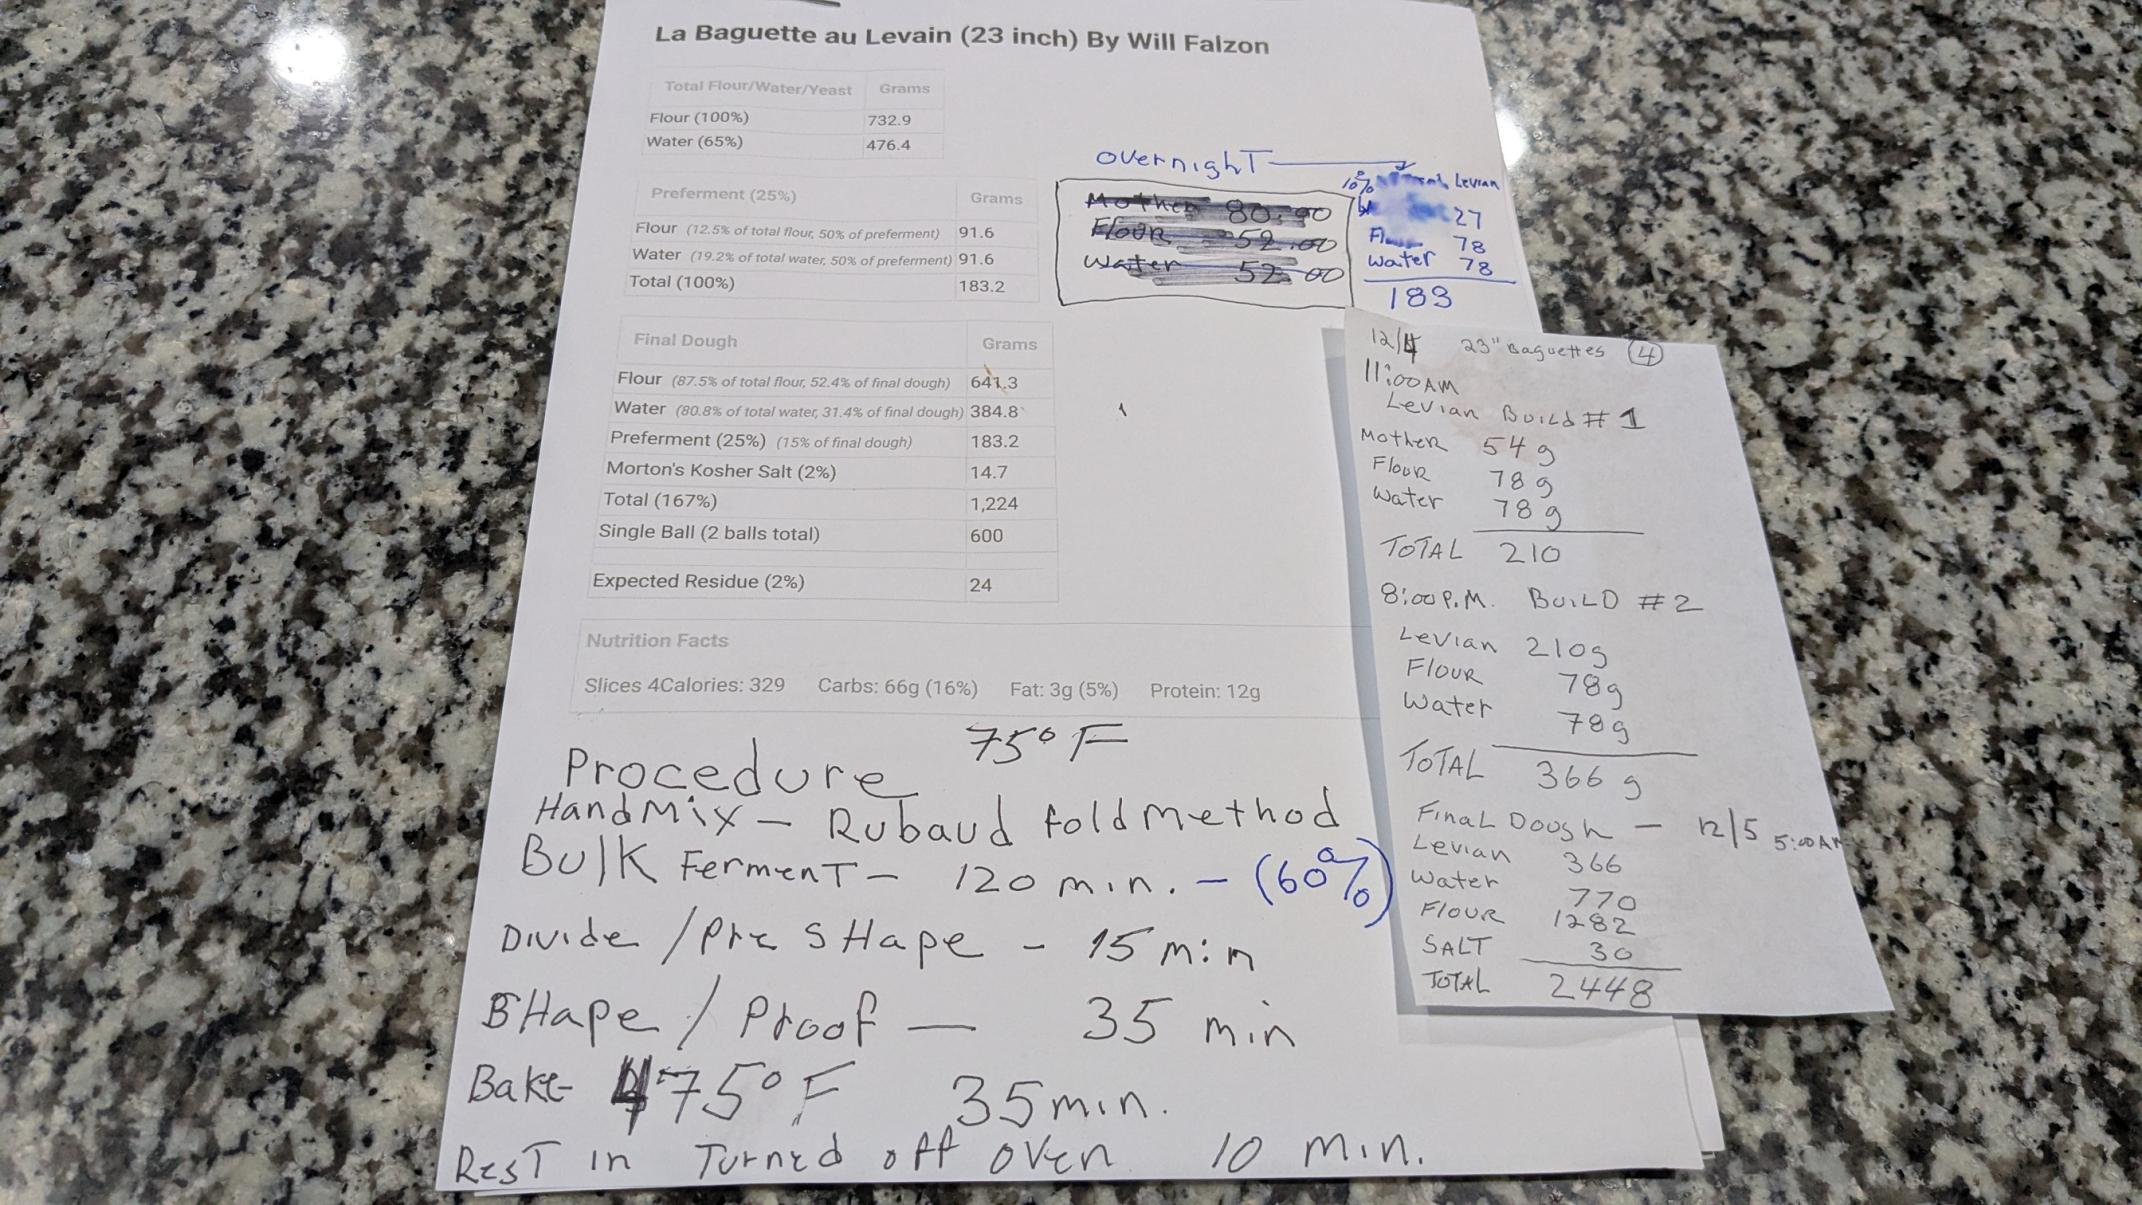 La Baguette au Levain (23 inch) By Will Falzon
Total Flour/Water/Yeast Grams
Flour (100%) 732.9
Water (65%) 476.4
Preferment (25%) Grams
Flour (12.5% of total flour, 50% of preferment) 91.6
Water (19.2% of total water, 50% of preferment) 91.6
Total (100%) 183.2
Final Dough Grams
Flour (87.5% of total flour, 52.4% of final dough) 641.3
Water (80.8% of total water, 31.4% of final dough) 384.8
Preferment (25%) (15% of final dough) 183.2
Morton's Kosher Salt (2%) 14.7
Total (167%) 1,224
Single Ball (2 balls total) 600
Expected Residue (2%) 24
Nutrition Facts
Slices 4Calories: 329 Carbs: 66g (16%) Fat: 3g (5%) Protein: 12g
overnighT
Mother 80.00
Flour 52.00
Water 52.00
10% Levian
27
78
Water 78
183
75° F
Procedure
HandMix - Rubaud fold method
Bulk FermenT - 120 min. - (60%)
Divide / Pre SHape - 15 min
SHape / Proof - 35 min
Bake 475° F 35 min.
ResT in Turned off oven 10 min.
12/4 23" Baguettes 4
11:00 AM
Levian Build # 1
Mother 54 g
Flour 78 g
Water 78 g
TOTAL 210
8:00 P.M. BuiLD # 2
Levian 210g
Flour 78g
Water 78g
TOTAL 366 g
Final Dough - 12/5 5:00 AM
Levian 366
Water 770
Flour 1282
SALT 30
TOTAL 2448